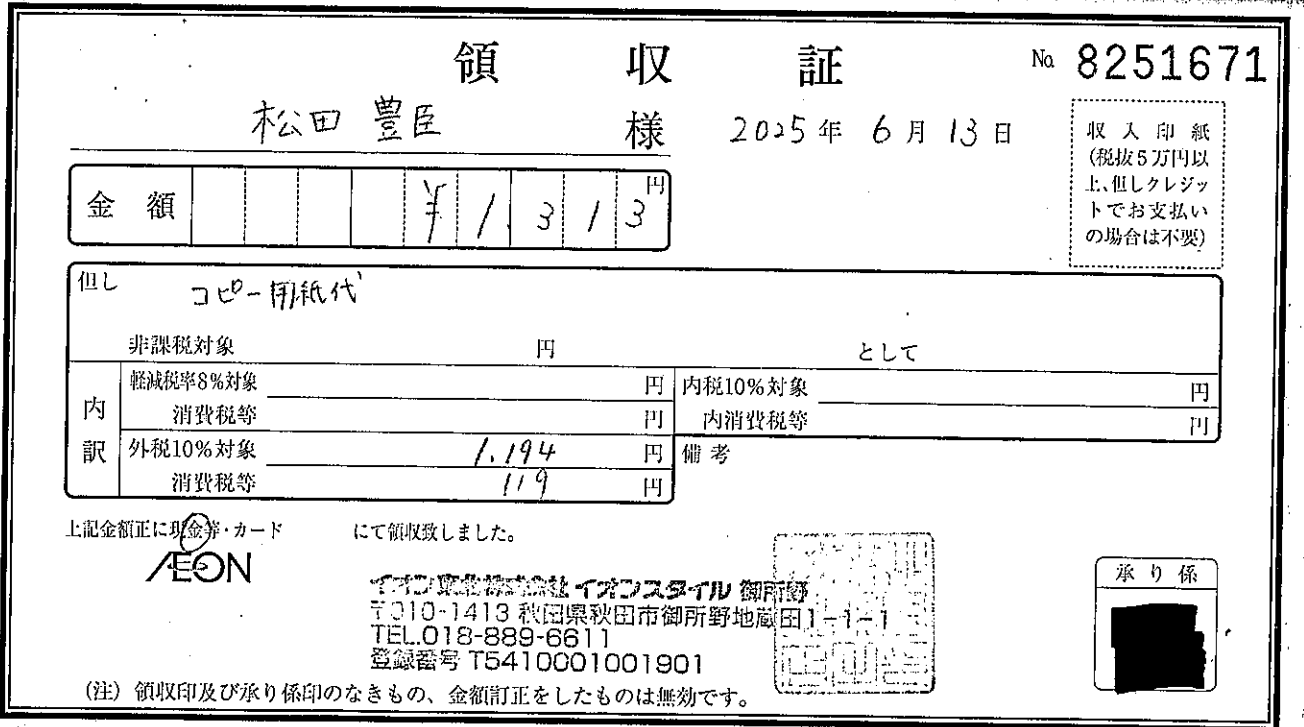 領収証 No. 8251671
松田 豊臣 様 2025年 6月 13日
収入印紙
(税抜5万円以
上、但しクレジッ
トでお支払い
の場合は不要)
金額 ¥1,313円
但し コピー用紙代
非課税対象 円 として
内訳
軽減税率8%対象 円 内税10%対象 円
消費税等 円 内消費税等 円
外税10%対象 1,194 円 備考
消費税等 119 円
上記金額正に現金等・カード にて領収致しました。
ÆON
イオン東北株式会社 イオンスタイル 御所野
〒010-1413 秋田県秋田市御所野地蔵田1-1-1
TEL.018-889-6611
登録番号 T5410001001901
承り係
(注) 領収印及び承り係印のなきもの、金額訂正をしたものは無効です。